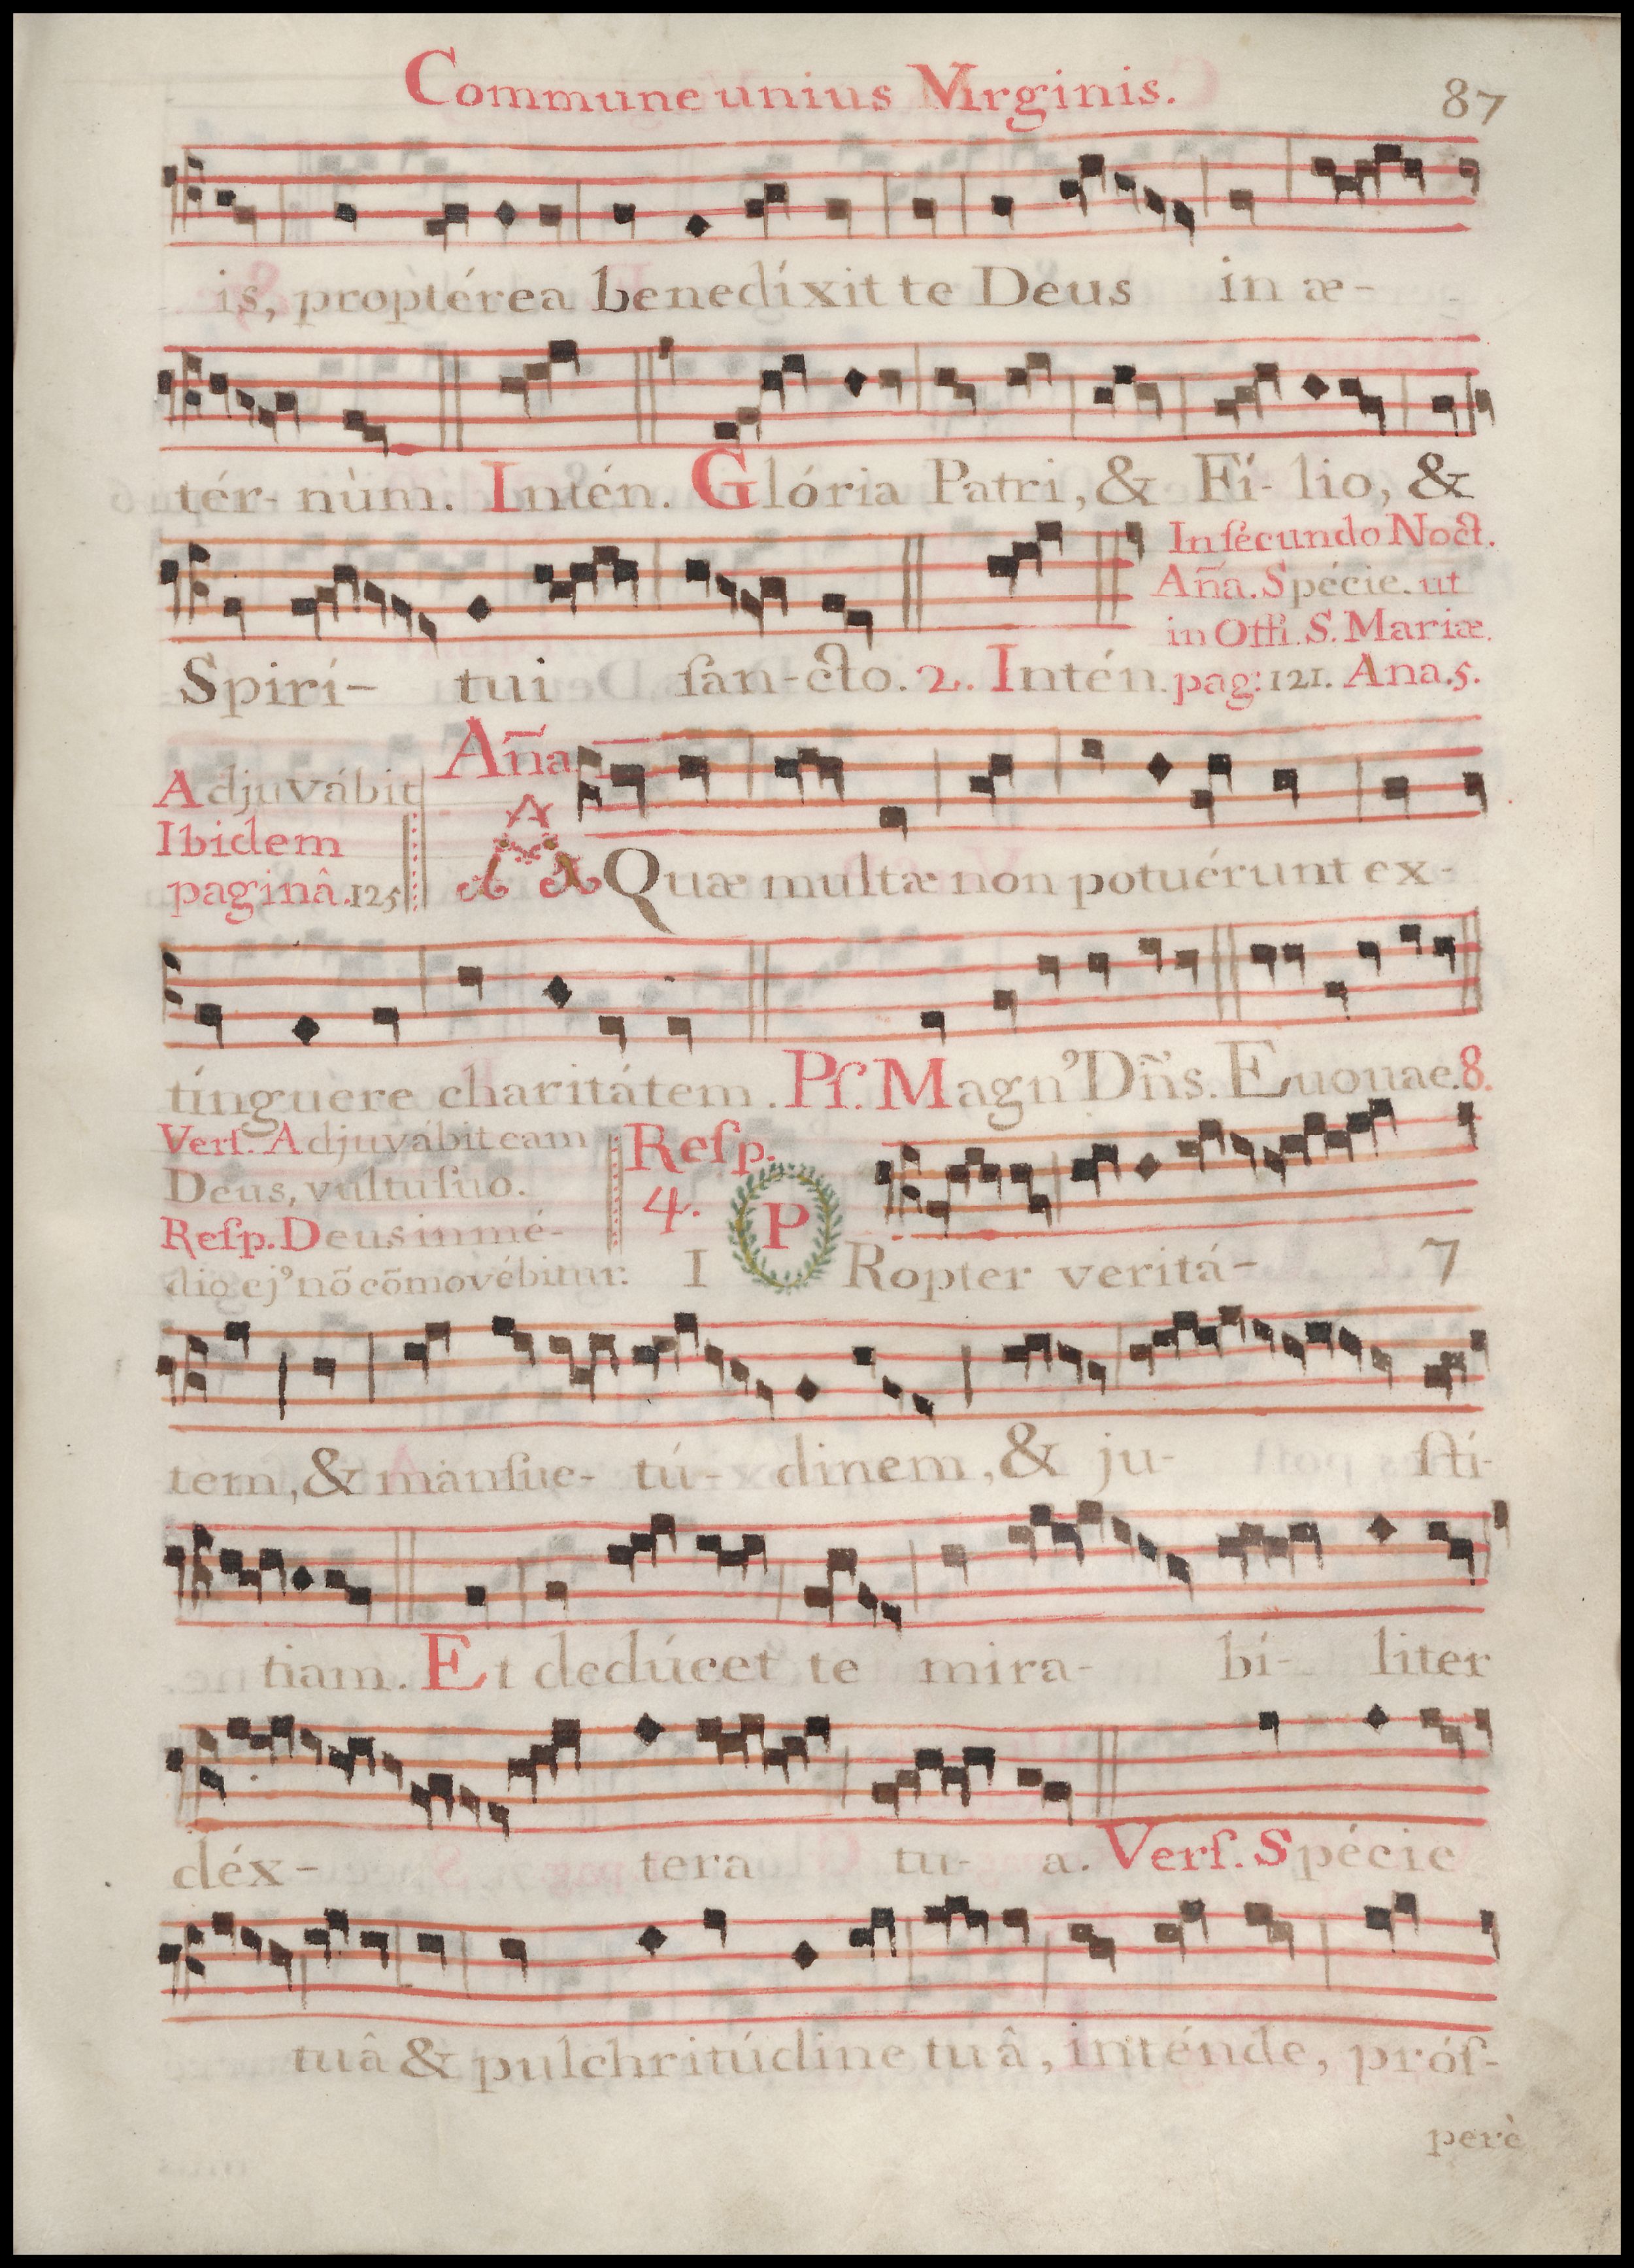 Commune unius Virginis.
87
is, proptérea benedíxit te Deus in æ-
tér- nùm. Intén. Glória Patri, & Fí- lio, &
In secundo Noct.
Aña. Spécie. ut
in Offi. S. Mariæ.
Spirí- tui ſan-cto. 2. Intén. pag: 121. Ana. 5.
Adjuvábit
Ibidem
paginâ. 125
Aña
AQuæ multæ non potuérunt ex-
tínguere charitátem. Pſ. Magn' Dñs. Euouae. 8.
Verſ. Adjuvábit eam
Deus, vultu ſuo.
Reſp. Deus in mé-
dio ej' nõ cõmovébitur.
Reſp.
4.
I PRopter veritá- 7
tem, & manſue- tú- dinem, & ju- ſtí-
tiam. Et dedúcet te mira- bí- liter
déx- tera tu- a. Verſ. Spécie
tuâ & pulchritúdine tuâ, inténde, próſ-
perè